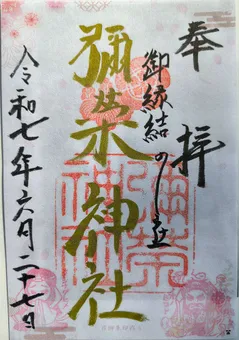 奉拝
御縁結のし立
彌栄神社
令和七年六月二十七日